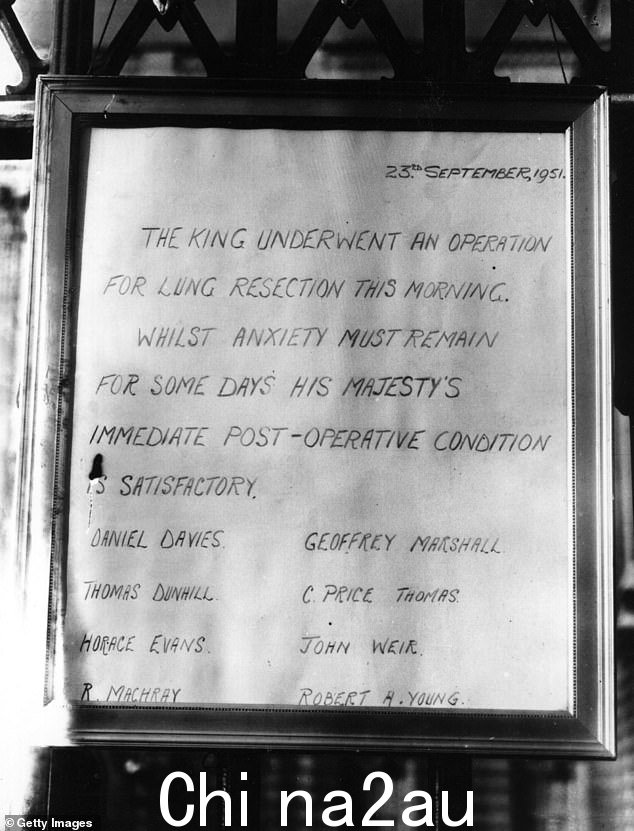 23th SEPTEMBER, 1951.
THE KING UNDERWENT AN OPERATION
FOR LUNG RESECTION THIS MORNING.
WHILST ANXIETY MUST REMAIN
FOR SOME DAYS HIS MAJESTY'S
IMMEDIATE POST-OPERATIVE CONDITION
IS SATISFACTORY.
DANIEL DAVIES. GEOFFREY MARSHALL
THOMAS DUNHILL. C. PRICE THOMAS.
HORACE EVANS. JOHN WEIR.
R. MACHRAY ROBERT A. YOUNG.
China2au
© Getty Images